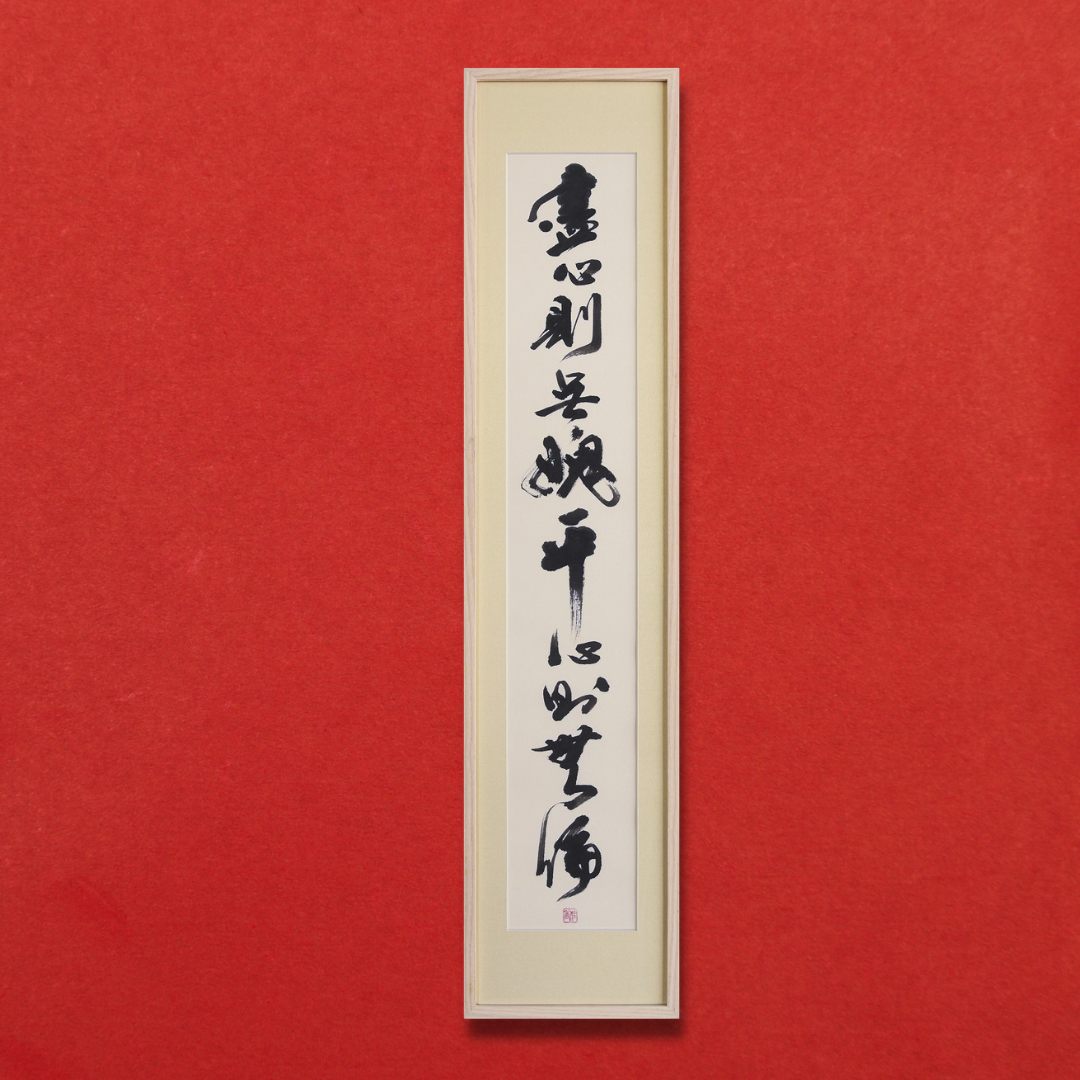 盡心則無愧平心則無偏